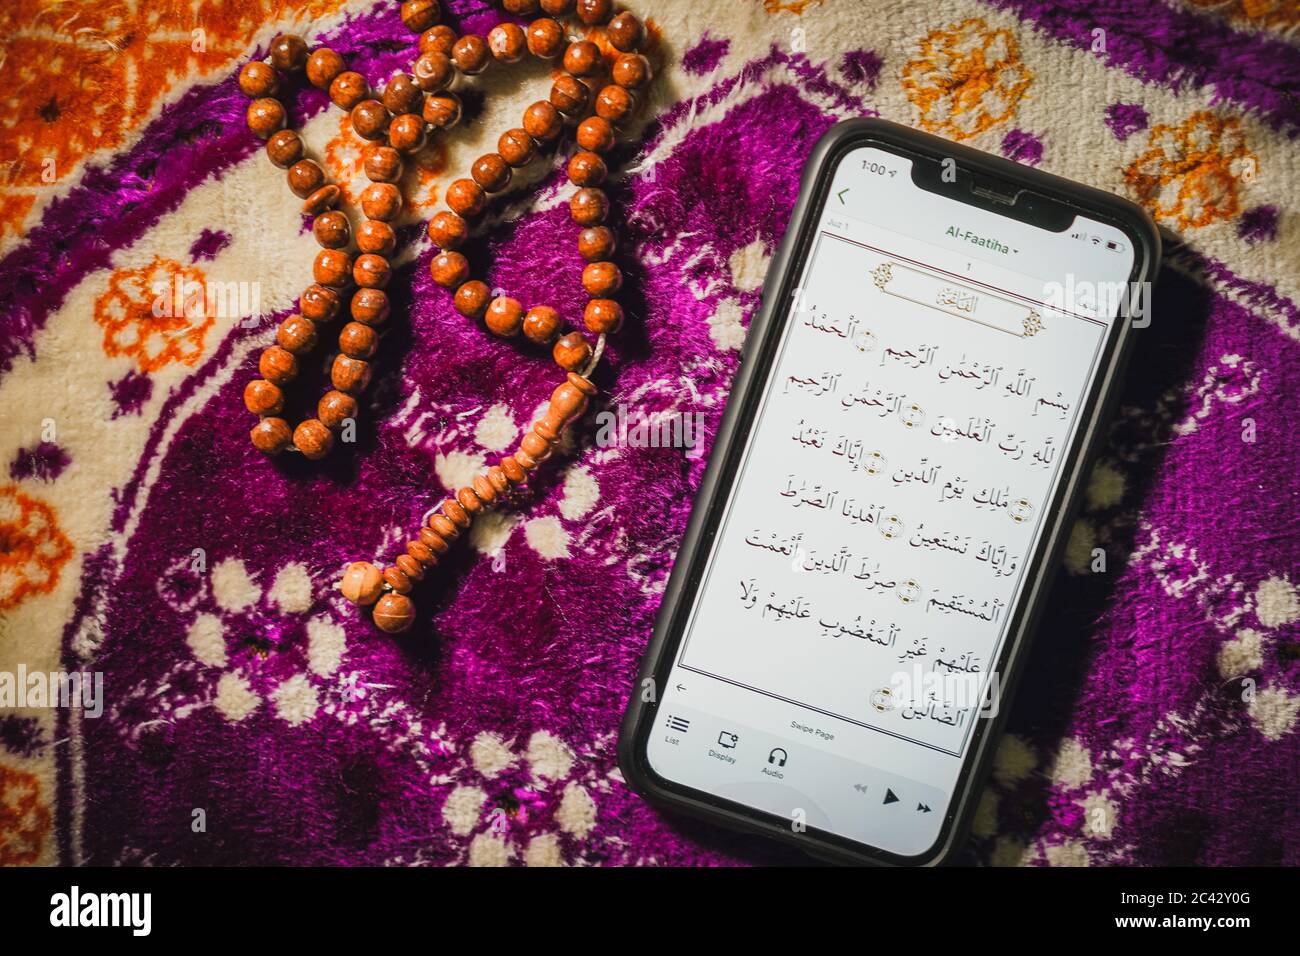 1:00
Al-Faatiha
Juz 1
1
الفاتحة
بِسْمِ ٱللَّهِ ٱلرَّحْمَٰنِ ٱلرَّحِيمِ ٱلْحَمْدُ
لِلَّهِ رَبِّ ٱلْعَٰلَمِينَ ٱلرَّحْمَٰنِ ٱلرَّحِيمِ
مَٰلِكِ يَوْمِ ٱلدِّينِ إِيَّاكَ نَعْبُدُ
وَإِيَّاكَ نَسْتَعِينُ ٱهْدِنَا ٱلصِّرَٰطَ
ٱلْمُسْتَقِيمَ صِرَٰطَ ٱلَّذِينَ أَنْعَمْتَ
عَلَيْهِمْ غَيْرِ ٱلْمَغْضُوبِ عَلَيْهِمْ وَلَا
ٱلضَّآلِّينَ
Swipe Page
List
Display
Audio
alamy
a
alamy
Image ID: 2C42Y0G
www.alamy.com